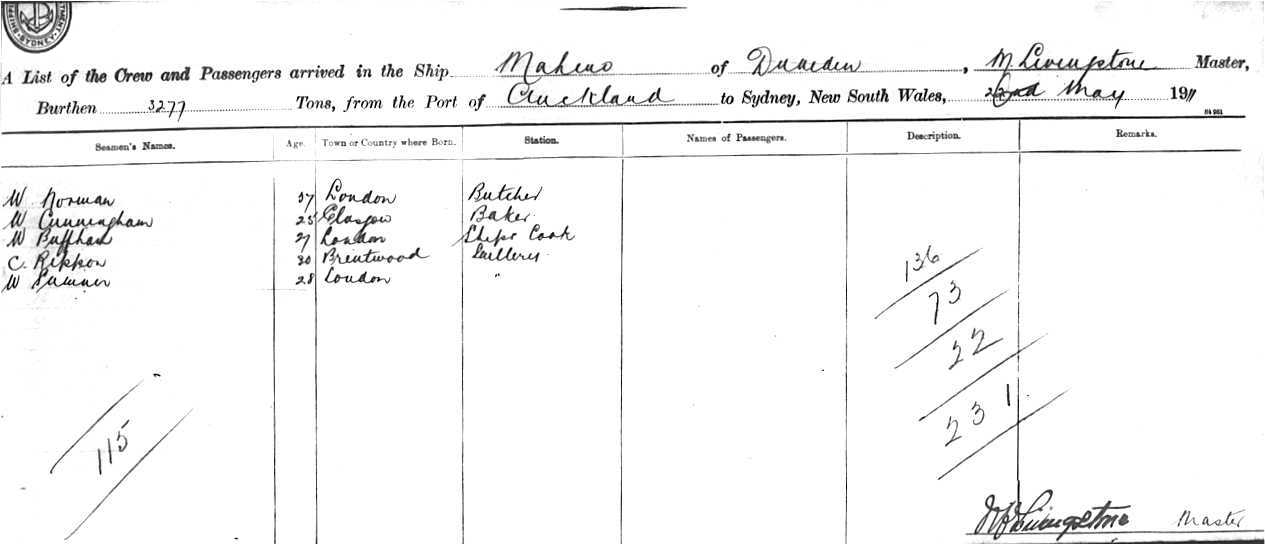 SHIPPING
SYDNEY
A List of the Crew and Passengers arrived in the Ship Maheno of Dunedin, M. Livingstone Master,
Burthen 3277 Tons, from the Port of Auckland to Sydney, New South Wales, 22nd May 1911
Seamen's Names. Age. Town or Country where Born. Station. Names of Passengers. Description. Remarks.
W Norman 37 London Butcher
W Cunningham 25 Glasgow Baker
W Buffham 27 London Ships Cook
C. Rippon 30 Brentwood
W Sumner 28 London "
136
73
22
231
115
Livingstone Master